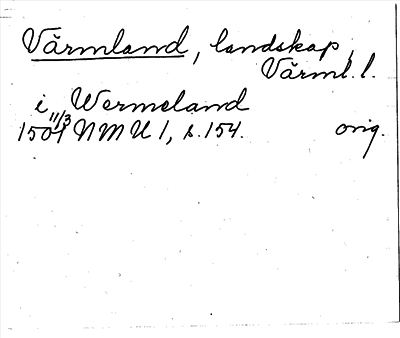 Värmland, landskap,
Värml. l.
i Wermeland
1504 11/3 NMU 1, s. 154. orig.